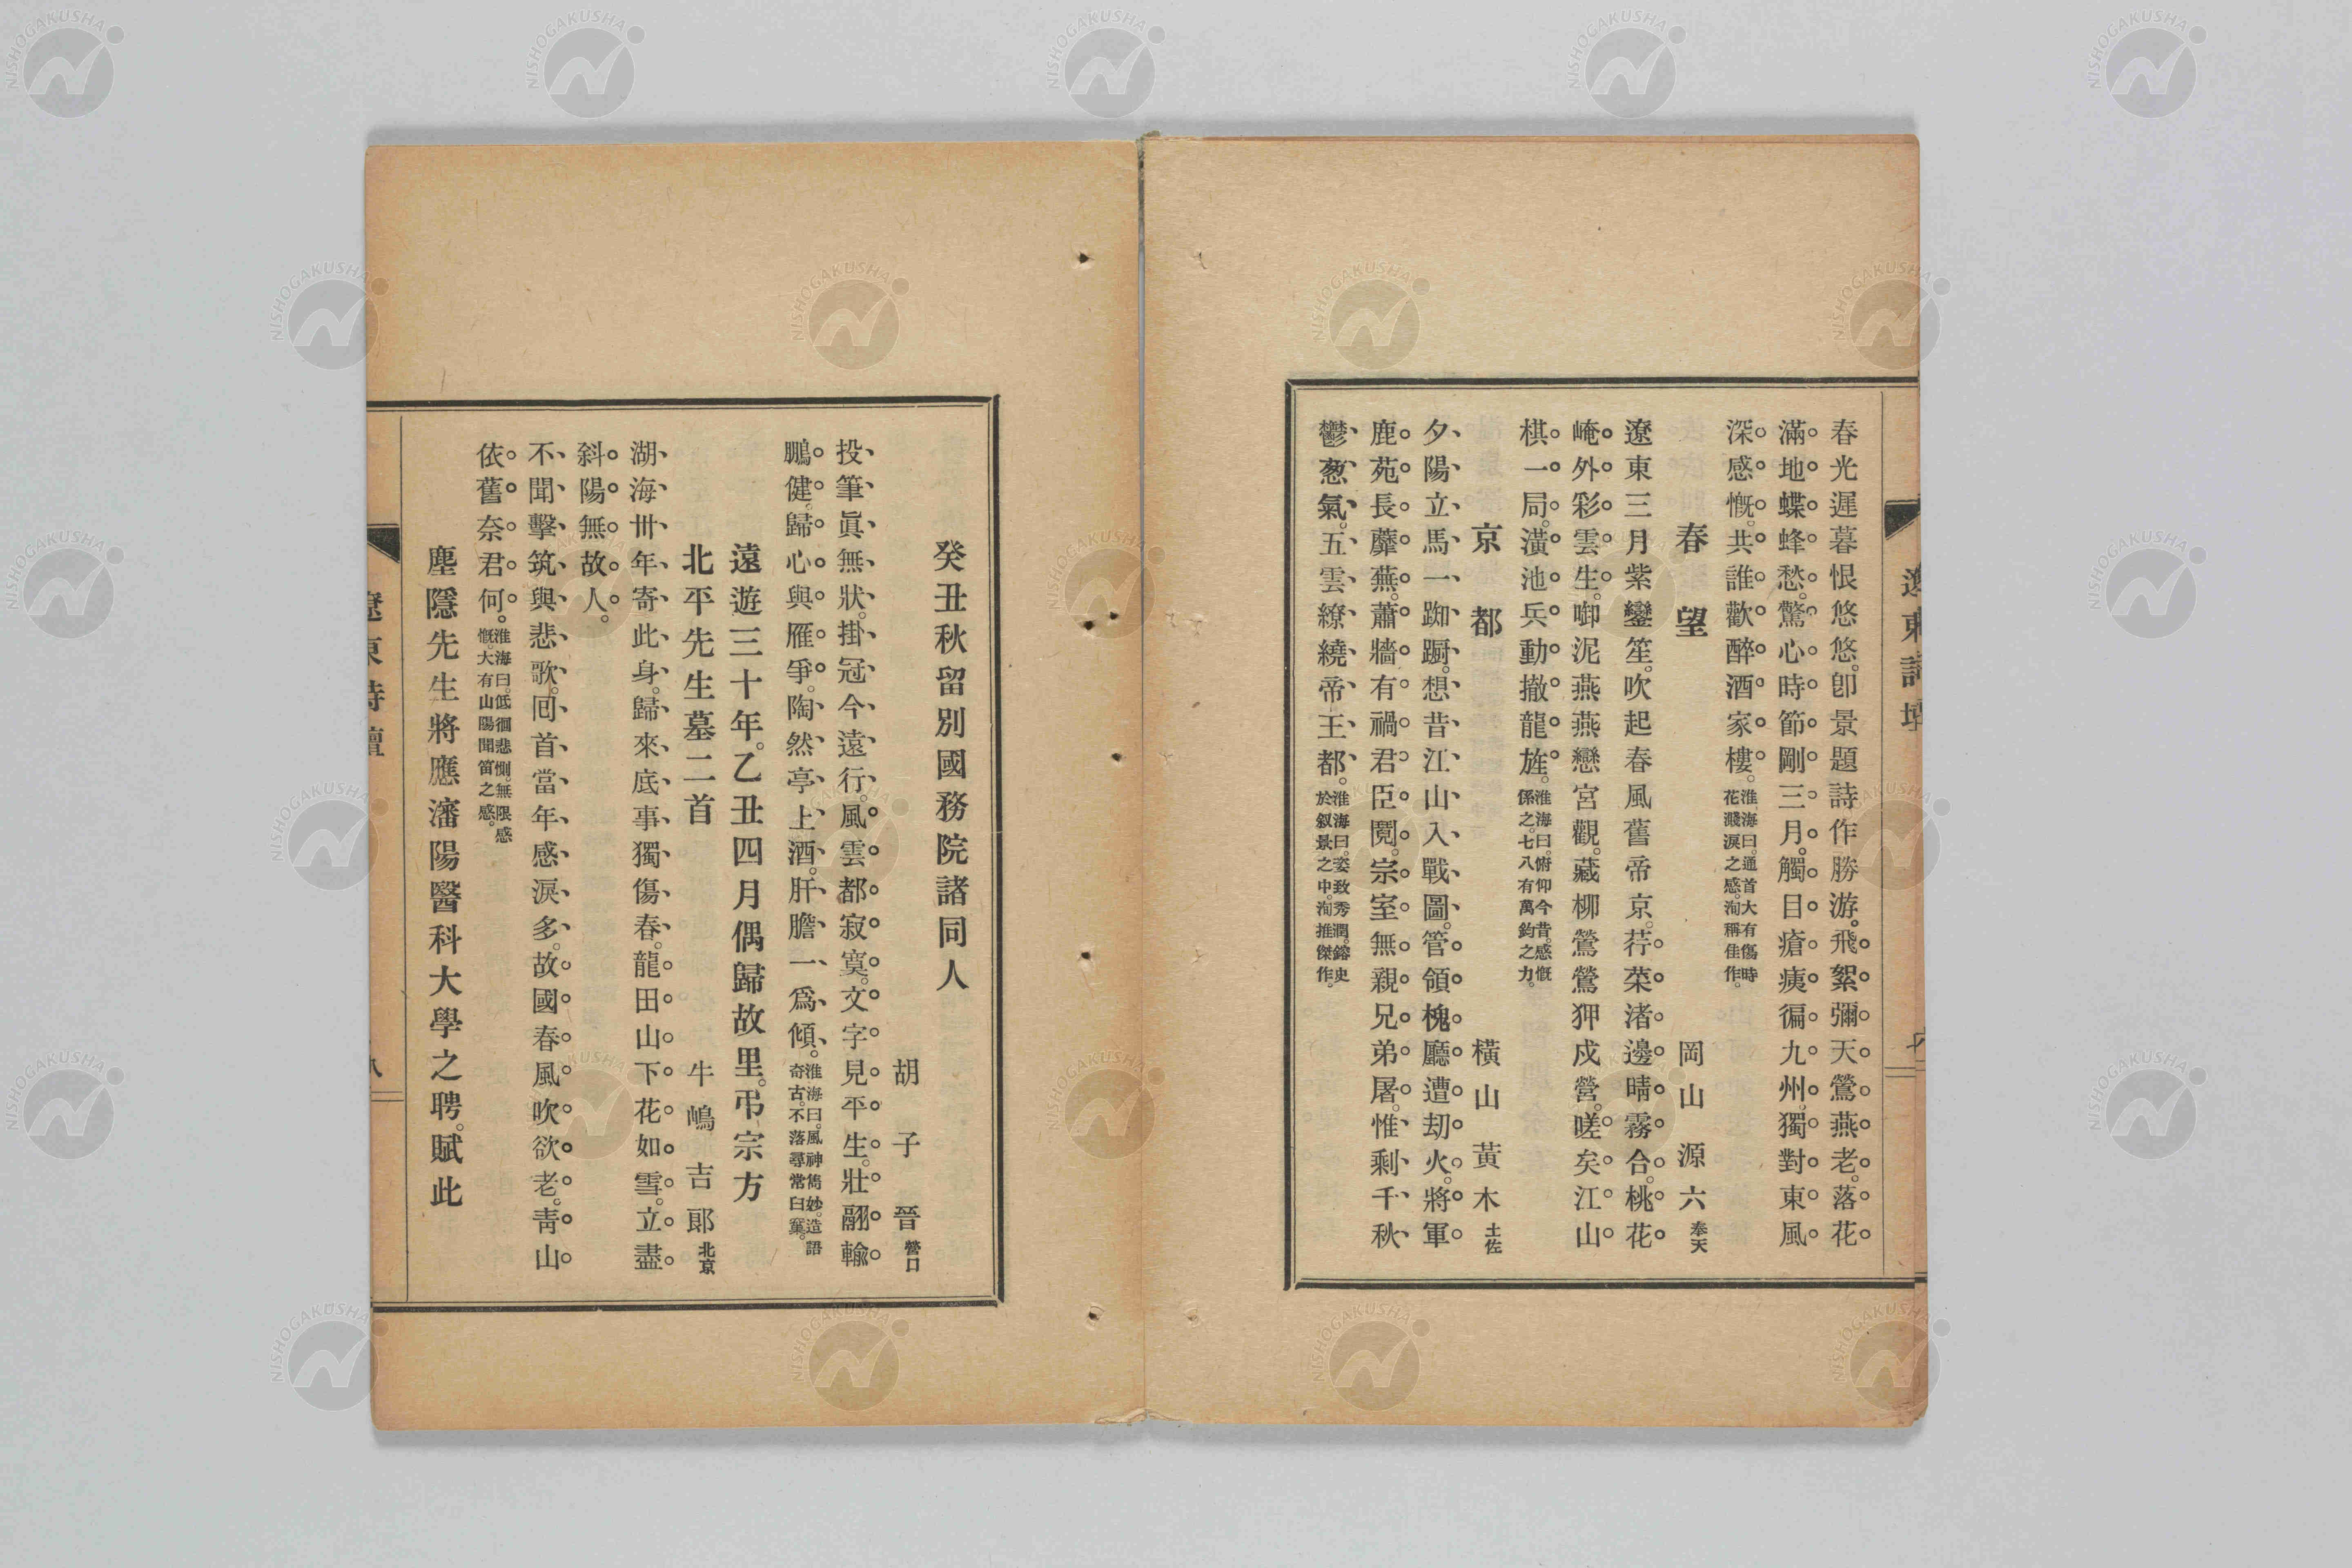 春光遲暮恨悠悠。卽景題詩作勝游。飛絮彌天鶯燕老。落花
滿地蝶蜂愁。驚心時節剛三月。觸目瘡痍徧九州。獨對東風
深感慨。共誰歡醉酒家樓。淮海曰。通首大有傷時
花濺淚之感。洵稱佳作。
春望
岡山源六 奉天
遼東三月紫鸞笙。吹起春風舊帝京。荇菜渚邊晴霧合。桃花
崦外彩雲生。啣泥燕燕戀宮觀。藏柳鶯鶯狎戍營。嗟矣江山
棋一局。潢池兵動撤龍旌。淮海曰。俯仰今昔。感慨
係之。七八有萬鈞之力。
京都
橫山黃木 土佐
夕陽立馬一踟蹰。想昔江山入戰圖。管領槐廳遭劫火。將軍
鹿苑長蘼蕪。蕭牆有禍君臣鬩。宗室無親兄弟屠。惟剩千秋
鬱蔥氣。五雲繚繞帝王都。淮海曰。姿致秀潤。鎔史
於叙景之中。洵推傑作。
癸丑秋留別國務院諸同人
胡子晉 營口
投筆眞無狀。掛冠今遠行。風雲都寂寞。文字見平生。壯翮輸
鵬健。歸心與雁爭。陶然亭上酒。肝膽一爲傾。淮海曰。風神雋妙。造語
奇古。不落尋常臼窠。
遠遊三十年。乙丑四月偶歸故里。弔宗方
北平先生墓二首
牛嶋吉郞 北京
湖海卅年寄此身。歸來底事獨傷春。龍田山下花如雪。立盡
斜陽無故人。
不聞擊筑與悲歌。囘首當年感淚多。故國春風吹欲老。靑山
依舊奈君何。淮海曰。低徊悲惻。無限感
慨。大有山陽聞笛之感。
塵隱先生將應瀋陽醫科大學之聘。賦此
遼東詩壇
八
NISHOGAKUSHA